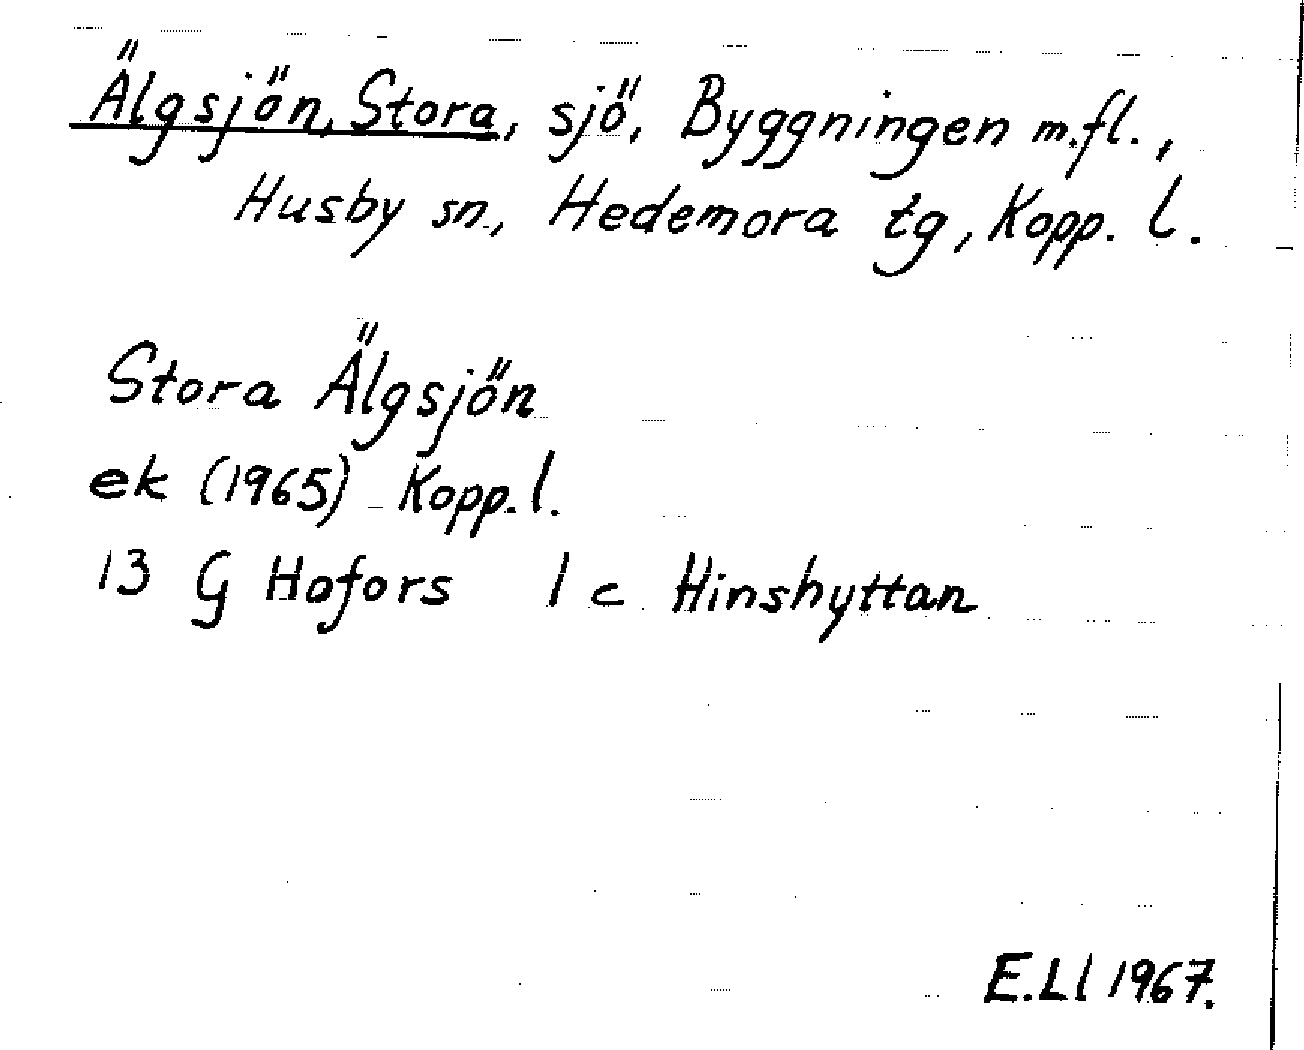 Älgsjön, Stora, sjö, Byggningen m.fl.,
Husby sn., Hedemora tg, Kopp. l.
Stora Älgsjön
ek (1965) Kopp. l.
13 G Hofors 1 c Hinshyttan
E.Ll 1967.